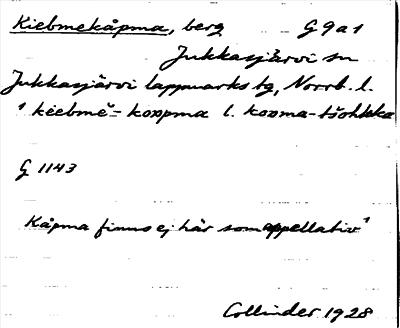 Kiebmekåpma, berg G9a1
Jukkasjärvi sn
Jukkasjärvi lappmarks tg, Norrb. l.
" kėebmĕ- koppma l. kopma-tšohkka
G 1143
Kåpma finns ej här som appellativ"
Collinder 1928